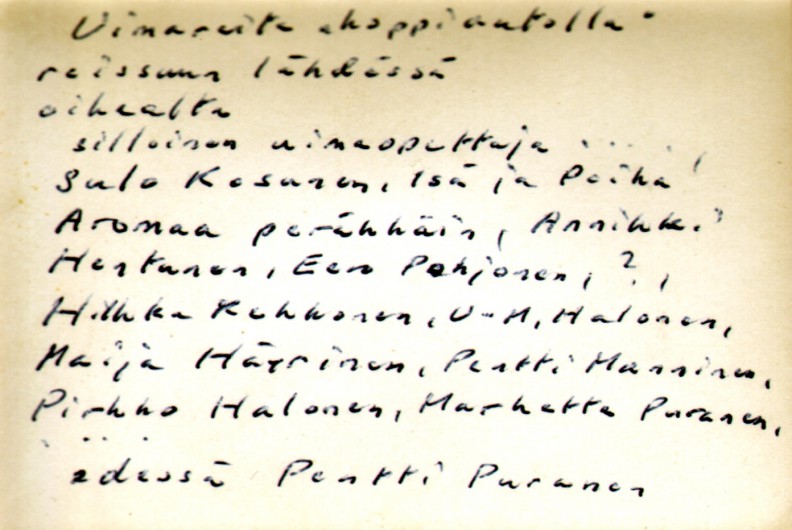 Uimareita "koppiautolla"
reissuun lähdössä
oikealta
silloinen uimaopettaja ....,
Sulo Kosunen, Isä ja Poika
Aromaa peräkkäin, Annikki
Hertunen, Eero Pohjonen, ?,
Hilkka Kekkonen, U-M, Halonen,
Maija Häyrinen, Pentti Manninen,
Pirkko Halonen, Marketta Puranen,
edessä Pentti Puranen